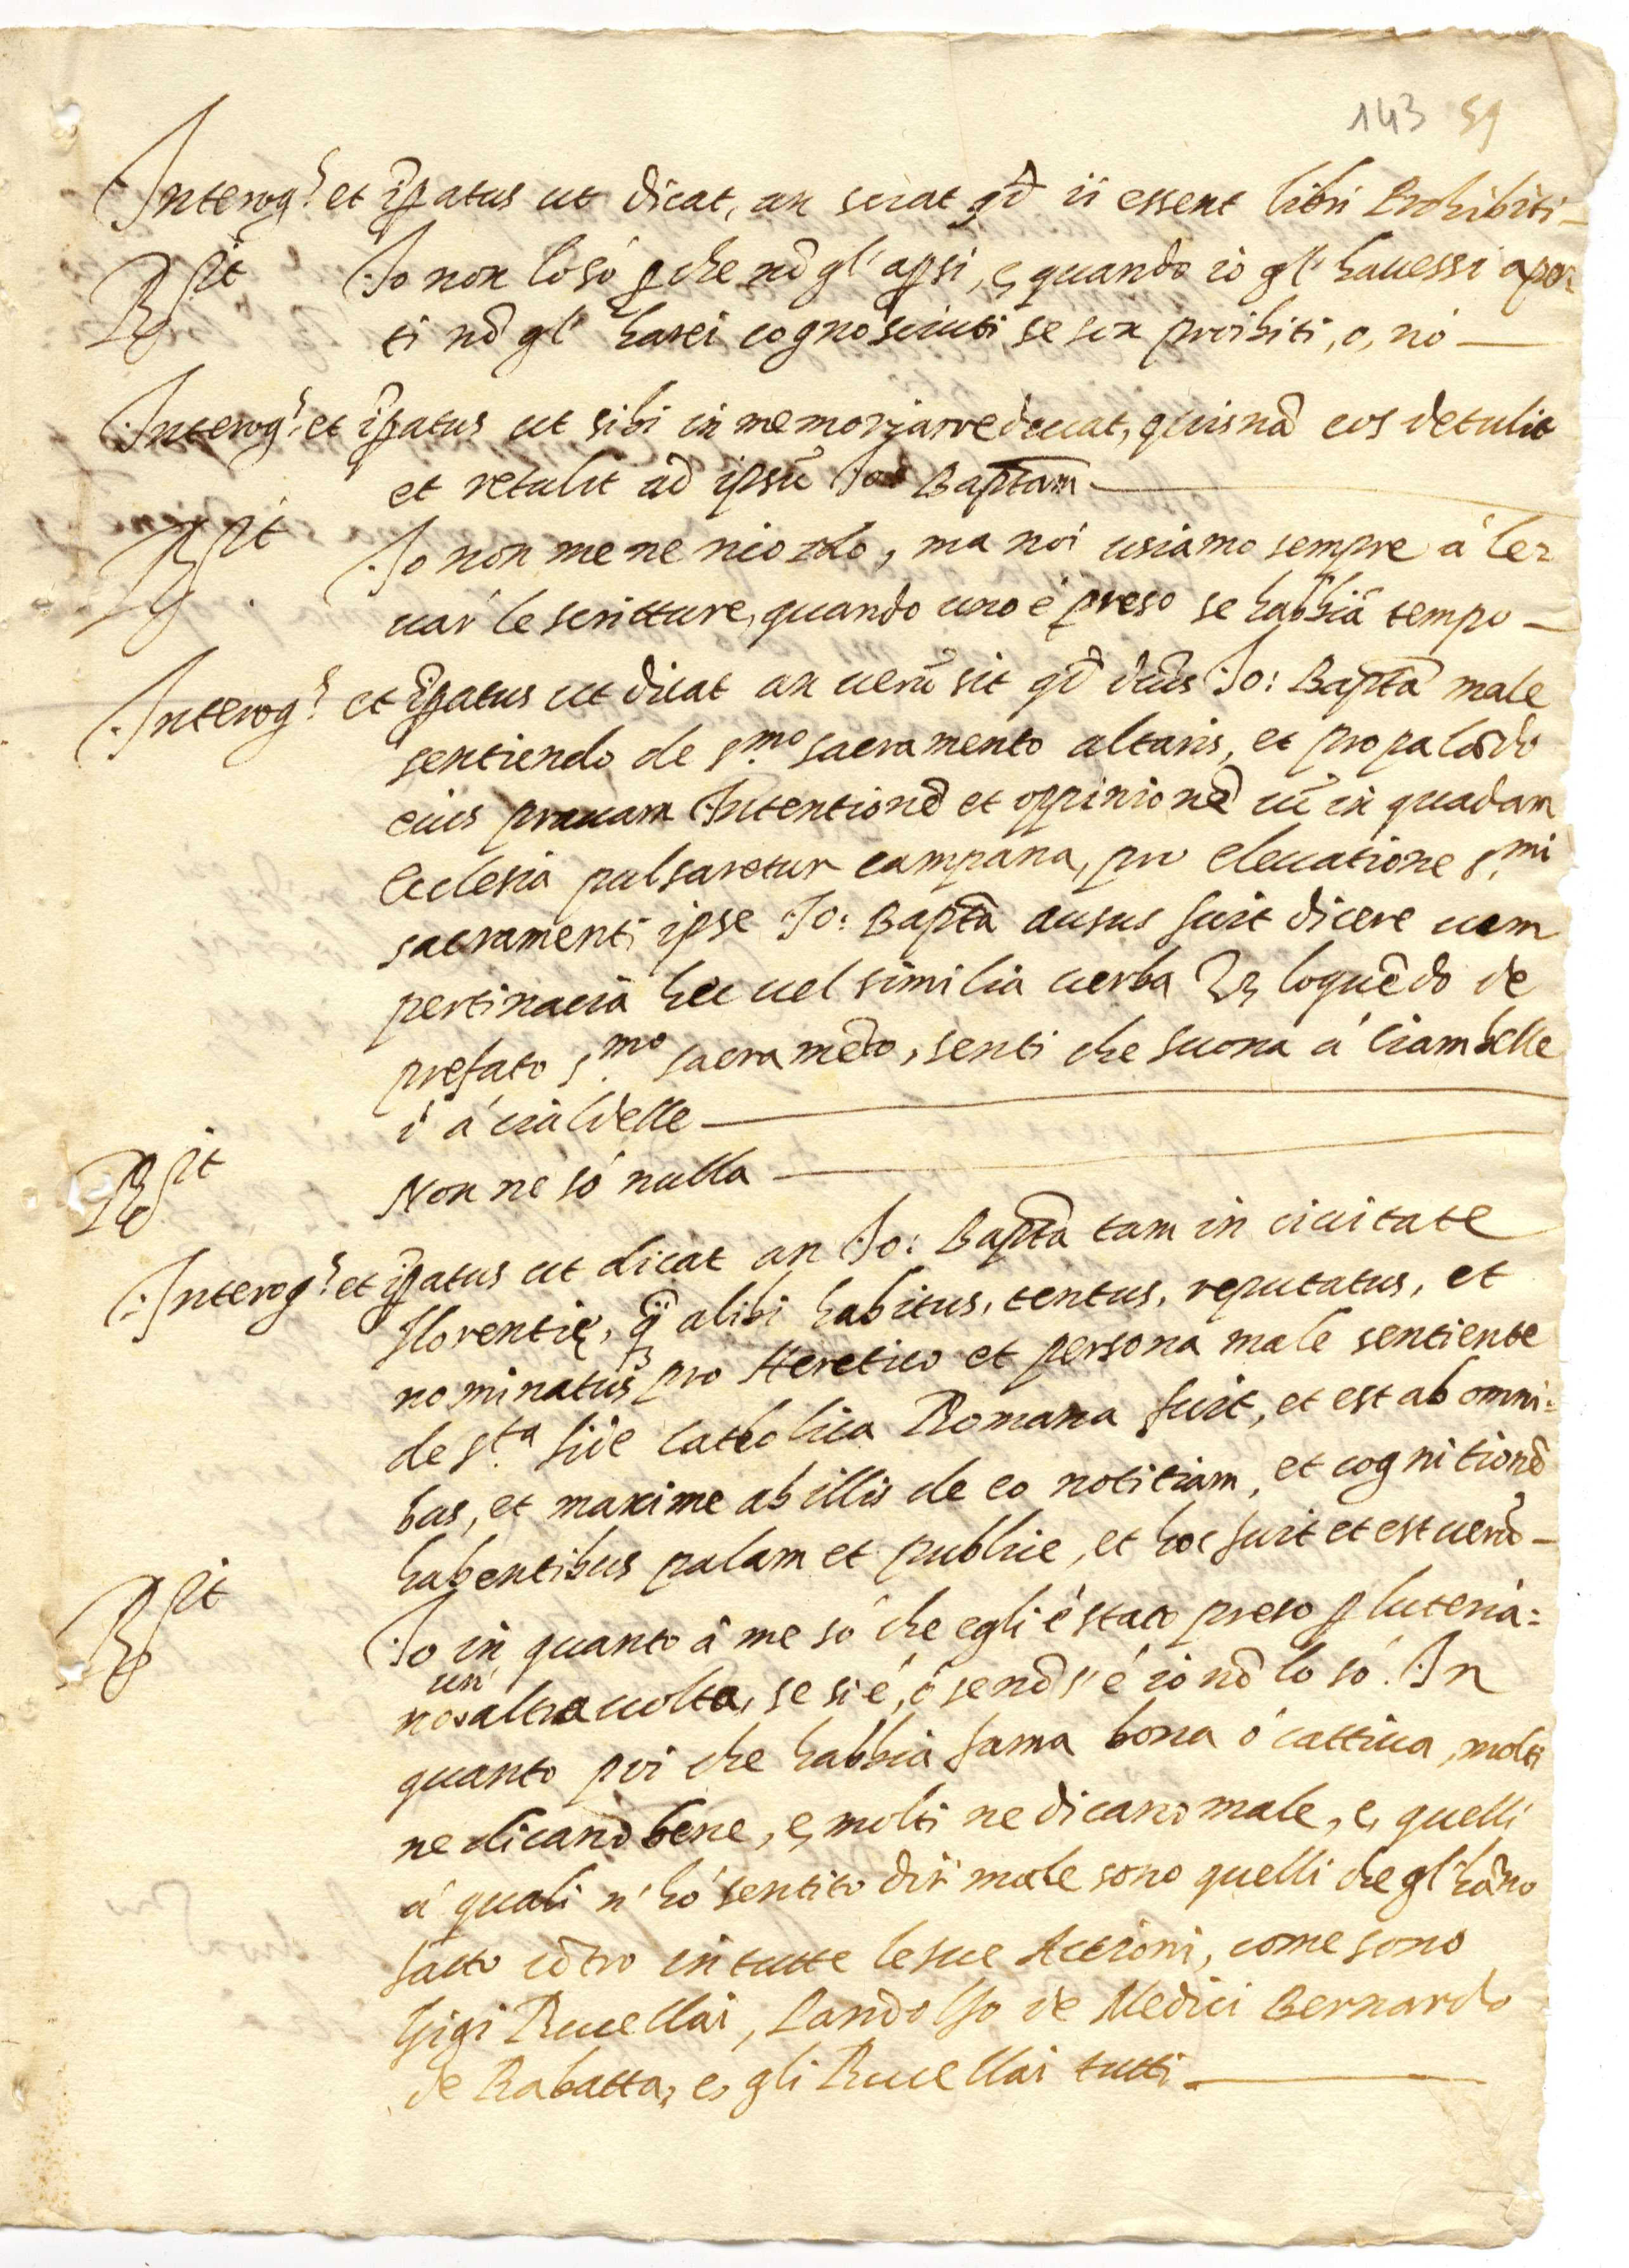 143 59
Interog.s et ip̃atus ut dicat, an sciat qd̃ ii essent libri Prohibiti
R.sit Io non lo sò ꝑche nõ gl' aꝑsi, e, quando io gl' havessi aper=
ti nõ gl' harei cognosciuti se son proibiti, o, nò
Interog.s et ip̃atus ut sibi in memoriam reducat, quisnã eos detulit
et retulit ad ipsũ Jo Bapt̃am
R.sit Io non me ne ricordo, ma noi usiamo sempre à le=
uar le scritture, quando uno è preso se habbiã tempo
Interog.s et ip̃atus ut dicat an uerũ sit qd̃ dc̃us Jo: Bapt̃a male
sentiendo de s.mo sacramento altaris, et propalãdo
eius prauam Intentionẽ et oppinionẽ cũ in quadam
Ecclesia pulsaretur campana, pro eleuatione s.mi
sacramenti ipse Jo: Bapt̃a ausus fuit dicere cum
pertinacia hec uel similia uerba loquẽdo de
prefato s.mo sacramẽto, senti che suona à ciambelle
ò à cialdelle
R.sit Non ne sò nulla
Interog.s et ip̃atus ut dicat an Jo: Bapt̃a tam in ciuitate
florentię, q̃ alibi habitus, tentus, reputatus, et
nominatus pro Heretico et persona male sentiente
de s.ta fide Catholica Romana fuit, et est ab omni=
bus, et maxime ab illis de eo notitiam, et cognitionẽ
habentibus palam et publice, et hoc fuit et est uerũ
R.sit Io in quanto à me sò che egli è stato preso ꝑ luteria=
un'
no altra uolta, se si è, ò se nõ s'è io nõ lo sò. In
quanto poi che habbia fama bona ò cattiua, molti
ne dicano bene, e, molti ne dicano male, e, quelli
à quali n' hò sentito dir male sono quelli che gl' hãno
fatto cõtro in tutte le sue Actioni, come sono
Gigi Rucellai, Pandolfo de Medici Bernardo
de Rabatta, e, gli Rucellai tutti